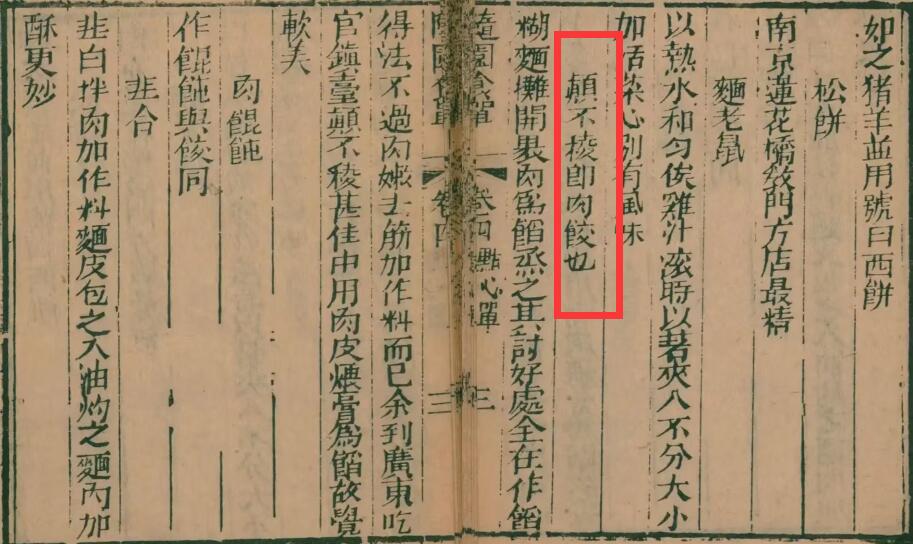 如之猪羊並用號曰西餅
松餅
南京蓮花橋教門方店最精
麵老鼠
以熱水和勻俟雞汁滚時以箸夾入不分大小
加活菜心別有風味
顛不棱即肉餃也
糊麵攤開裹肉爲餡蒸之其討好處全在作餡
隨園食單 卷四 點心單 三
隨園食單 卷四 三
得法不過肉嫩去筋加作料而已余到廣東吃
官鎮臺顛不稜甚佳中用肉皮煨膏爲餡故覺
軟美
肉餛飩
作餛飩與餃同
韭合
韭白拌肉加作料麵皮包之入油灼之麵內加
酥更妙